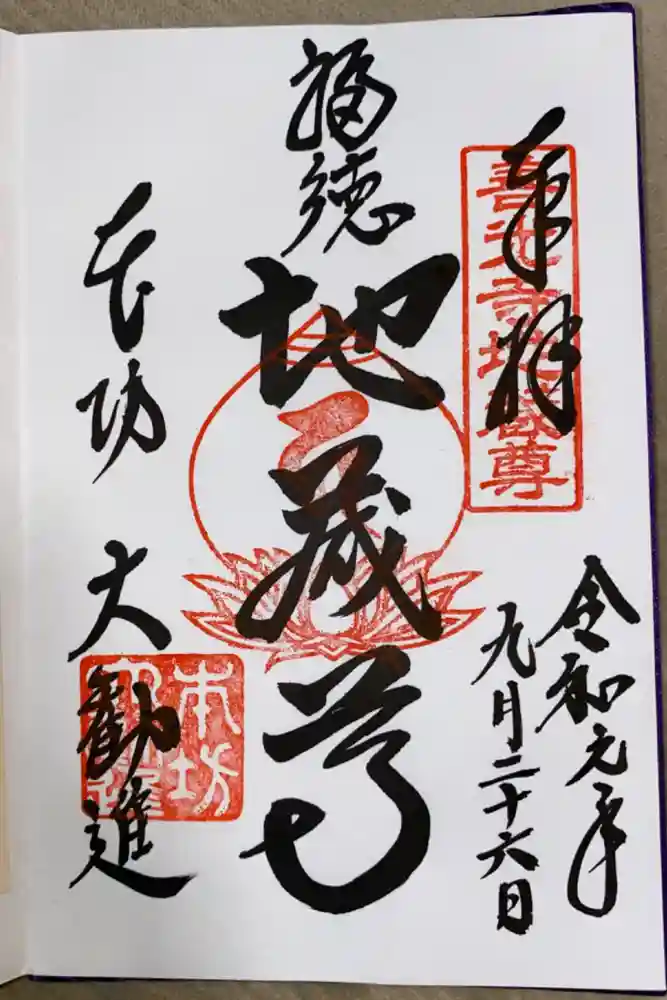 奉拝
善光寺地蔵尊
令和元年
九月二十六日
福徳
地蔵尊
本坊 大勧進
本坊
大勧進